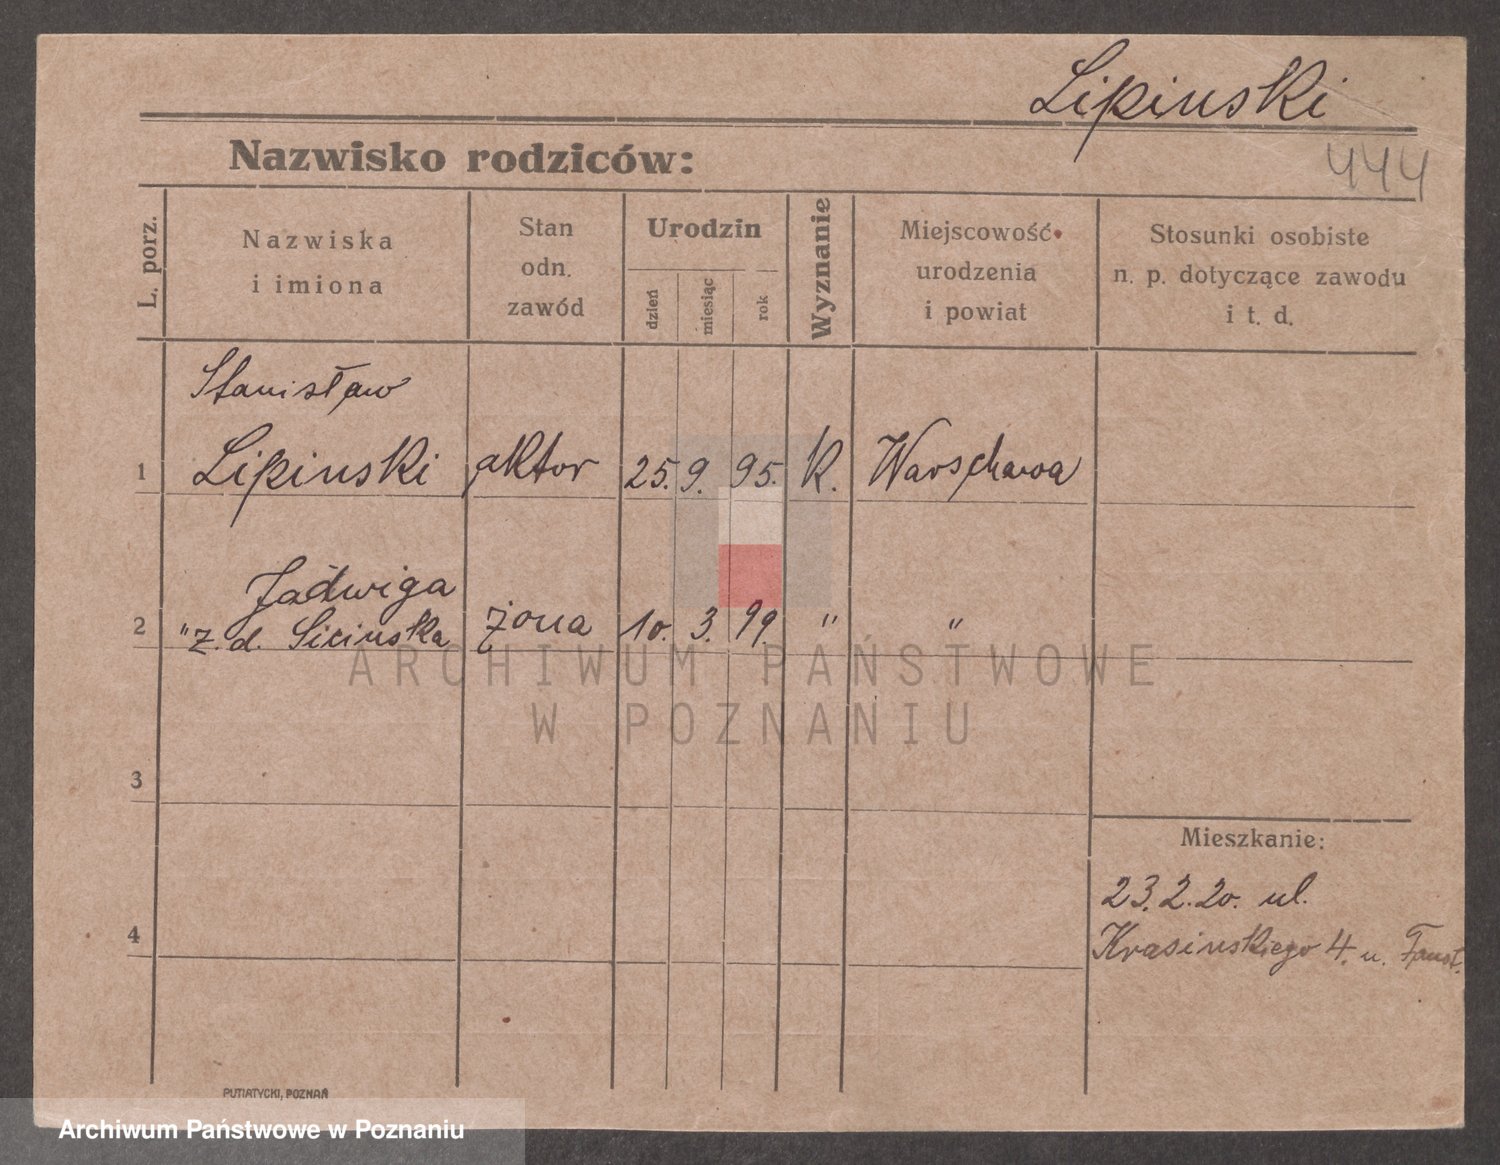 Lipinski
444
Nazwisko rodziców:
L. porz.
Nazwiska
i imiona
Stan
odn.
zawód
Urodzin
dzień
miesiąc
rok
Wyznanie
Miejscowość
urodzenia
i powiat
Stosunki osobiste
n. p. dotyczące zawodu
i t. d.
Stanisław
1 Lipinski aktor 25. 9. 95. K. Warschawa
Jadwiga
2 " z. d. Sicinska żona 10. 3. 99. " "
ARCHIWUM PAŃSTWOWE
W POZNANIU
3
Mieszkanie:
23.2.20. ul.
4
Krasinskiego 4. u.
PUTIATYCKI, POZNAŃ
Archiwum Państwowe w Poznaniu